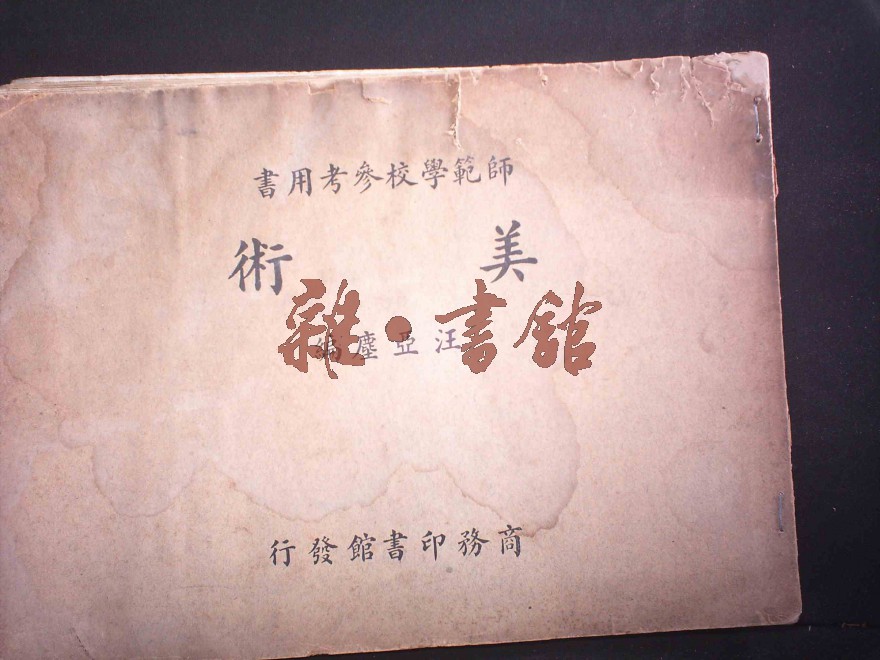 師範學校參考用書
美術
汪亞塵編
雜·書館
商務印書館發行